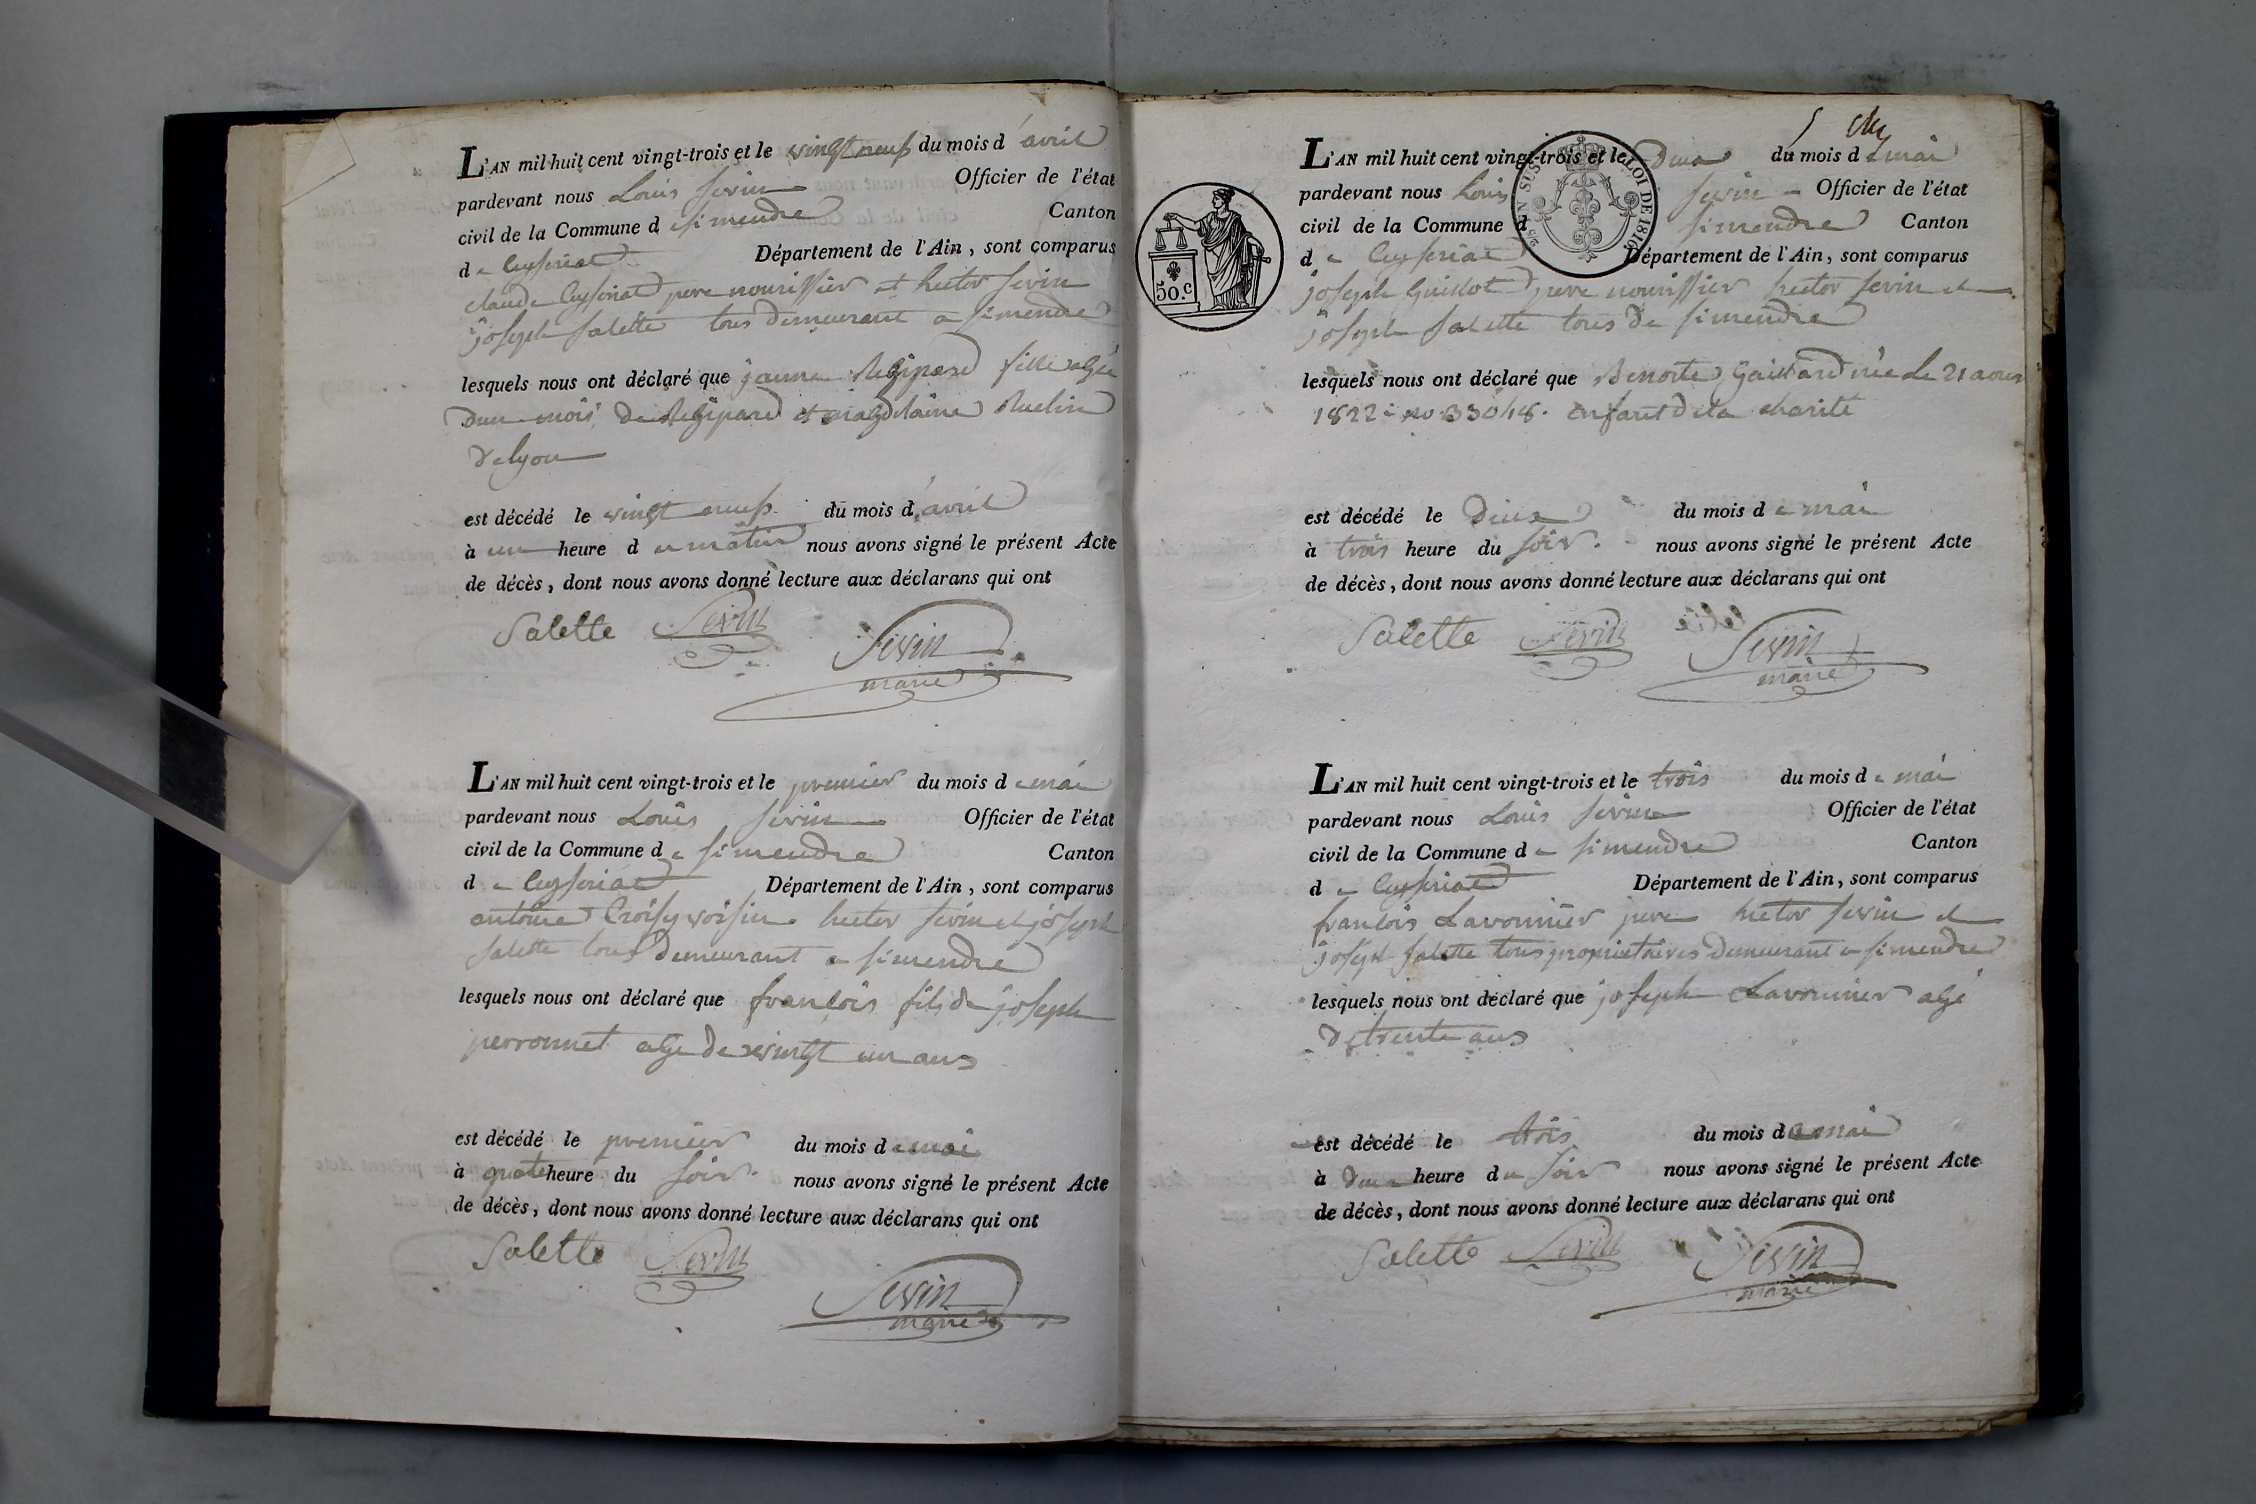 L'AN mil huit cent vingt-trois et le vingt neuf du mois d'avril
pardevant nous Louis sevin Officier de l'état
civil de la Commune d simendre Canton
d e Ceyseriat Département de l'Ain, sont comparus
claude Ceyseriat pere nourissier et hector sevin
joseph salette tous demeurant a simendre
lesquels nous ont déclaré que fille agée
dun mois de et magdelaine
de lyon
est décédé le vingt neuf du mois d'avril
à un heure d u matin nous avons signé le présent Acte
de décès, dont nous avons donné lecture aux déclarans qui ont
Salette Sevin Sevin
maire
L'AN mil huit cent vingt-trois et le premier du mois d e mai
pardevant nous Louis sevin Officier de l'état
civil de la Commune d e simendre Canton
d e Ceyseriat Département de l'Ain, sont comparus
antoine Croisy voisin hector sevin et joseph
salette tous demeurant a simendre
lesquels nous ont déclaré que françois fils de joseph
perronnet age de vingt un ans
est décédé le premier du mois d e mai
à quatre heure du soir nous avons signé le présent Acte
de décès, dont nous avons donné lecture aux déclarans qui ont
Salette Sevin Sevin
maire
L'AN mil huit cent vingt-trois et le deux du mois d e mai
pardevant nous Louis sevin Officier de l'état
civil de la Commune d simendre Canton
d e Ceyseriat Département de l'Ain, sont comparus
joseph Guillot pere nourissier hector sevin et
joseph salette tous de simendre
lesquels nous ont déclaré que Benoite Gaillard née le 21 aout
1822 no 33018. enfant de la charité
est décédé le deux du mois d e mai
à trois heure du soir. nous avons signé le présent Acte
de décès, dont nous avons donné lecture aux déclarans qui ont
Salette Sevin Sevin
maire
50.C
LOI DE 1816
EN SUS
L'AN mil huit cent vingt-trois et le trois du mois d e mai
pardevant nous Louis sevin Officier de l'état
civil de la Commune d e simendre Canton
d e Ceyseriat Département de l'Ain, sont comparus
francois Lavonnier pere hector sevin et
joseph salette tous proprietaires demeurant a simendre
lesquels nous ont déclaré que joseph Lavonnier agé
de trente ans
est décédé le trois du mois d e mai
à deux heure d u soir nous avons signé le présent Acte
de décès, dont nous avons donné lecture aux déclarans qui ont
Salette Sevin Sevin
maire